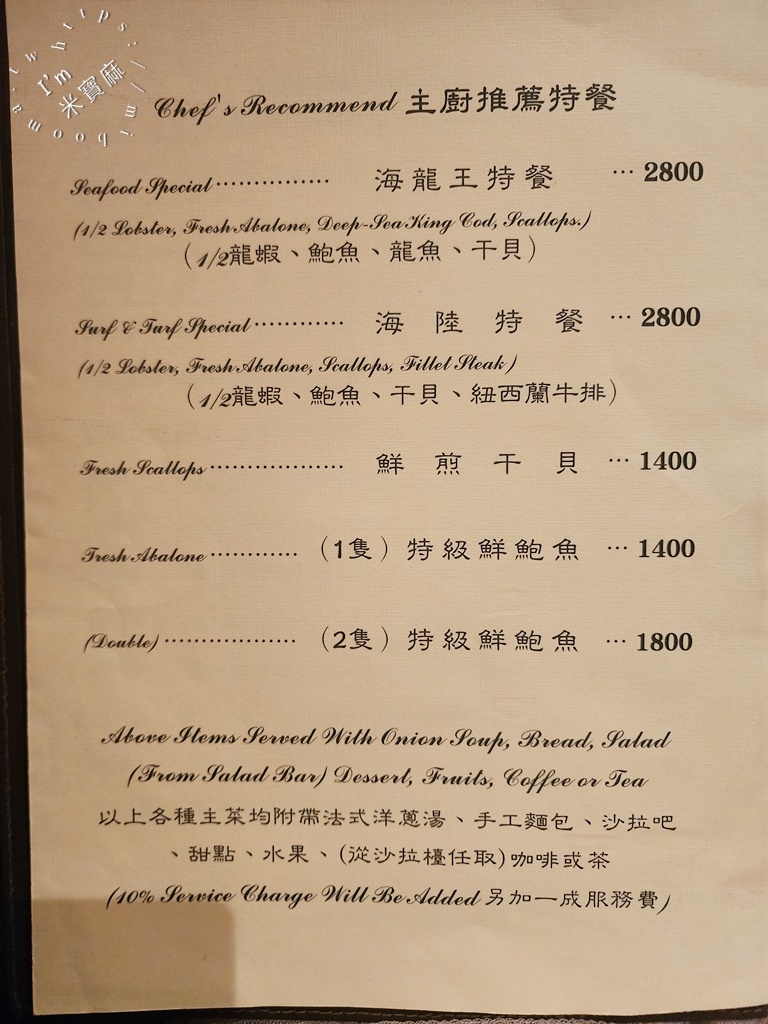 https://mibooma.tw
I'm
米寶麻
Chef's Recommend 主廚推薦特餐
Seafood Special ............... 海龍王特餐 ... 2800
(1/2 Lobster, Fresh Abalone, Deep-Sea King Cod, Scallops.)
(1/2龍蝦、鮑魚、龍魚、干貝)
Surf & Turf Special ............ 海陸特餐 ... 2800
(1/2 Lobster, Fresh Abalone, Scallops, Fillet Steak)
(1/2龍蝦、鮑魚、干貝、紐西蘭牛排)
Fresh Scallops .................. 鮮煎干貝 ... 1400
Fresh Abalone ............ (1隻) 特級鮮鮑魚 ... 1400
(Double) .................. (2隻) 特級鮮鮑魚 ... 1800
Above Items Served With Onion Soup, Bread, Salad
(From Salad Bar) Dessert, Fruits, Coffee or Tea
以上各種主菜均附帶法式洋蔥湯、手工麵包、沙拉吧
、甜點、水果、(從沙拉檯任取)咖啡或茶
(10% Service Charge Will Be Added 另加一成服務費)